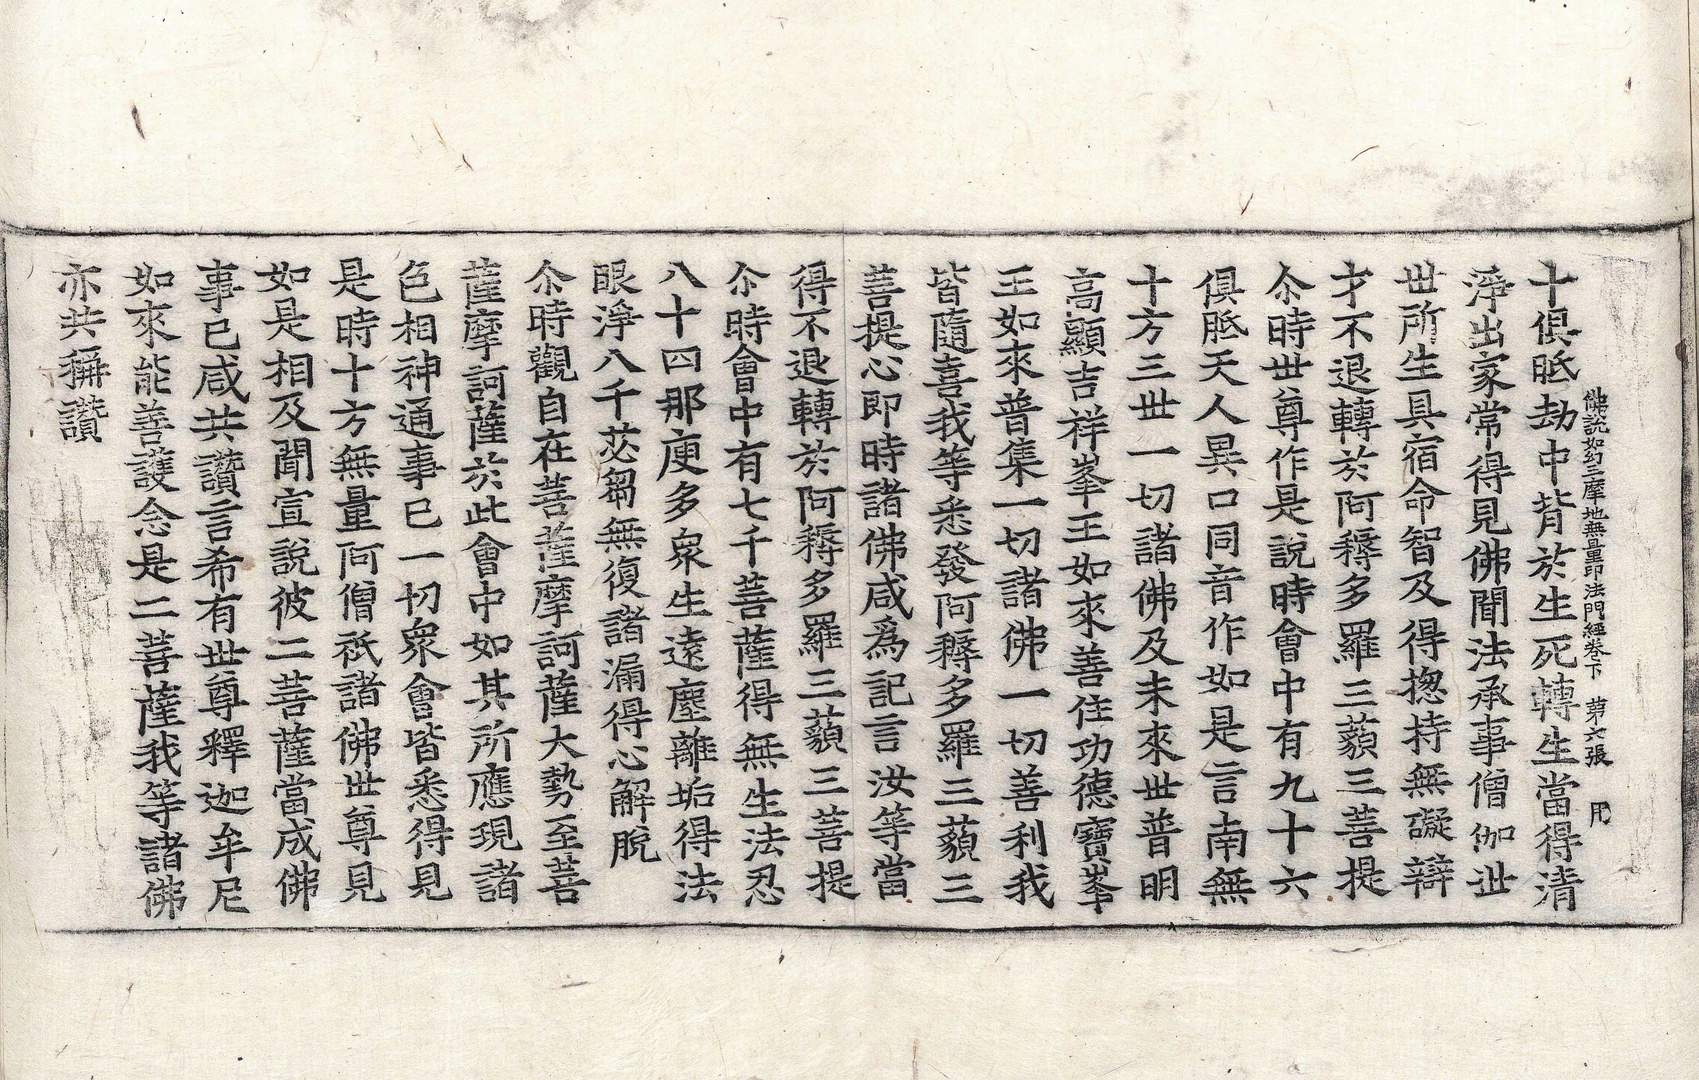 佛說如幻三摩地無量印法門經卷下　第六張　用
十俱胝劫中背於生死轉生當得清
淨出家常得見佛聞法承事僧伽世
世所生具宿命智及得揔持無礙辯
才不退轉於阿耨多羅三藐三菩提
尒時世尊作是說時會中有九十六
俱胝天人異口同音作如是言南無
十方三世一切諸佛及未來世普明
高顯吉祥峯王如來善住功德寶峯
王如來普集一切諸佛一切善利我
皆隨喜我等悉發阿耨多羅三藐三
菩提心即時諸佛咸爲記言汝等當
得不退轉於阿耨多羅三藐三菩提
尒時會中有七千菩薩得無生法忍
八十四那庾多衆生遠塵離垢得法
眼淨八千苾芻無復諸漏得心解脫
尒時觀自在菩薩摩訶薩大勢至菩
薩摩訶薩於此會中如其所應現諸
色相神通事已一切衆會皆悉得見
是時十方無量阿僧祇諸佛世尊見
如是相及聞宣說彼二菩薩當成佛
事已咸共讚言希有世尊釋迦牟尼
如來能善護念是二菩薩我等諸佛
亦共稱讚